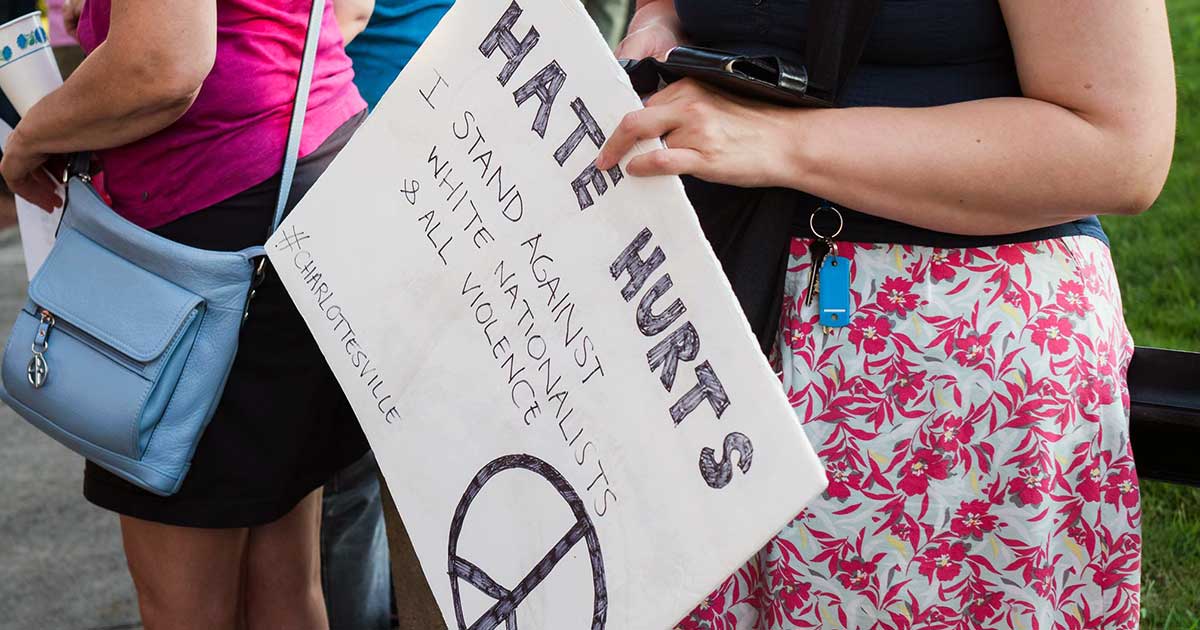 HATE HURTS
I STAND AGAINST
WHITE NATIONALISTS
& ALL VIOLENCE
#CHARLOTTESVILLE